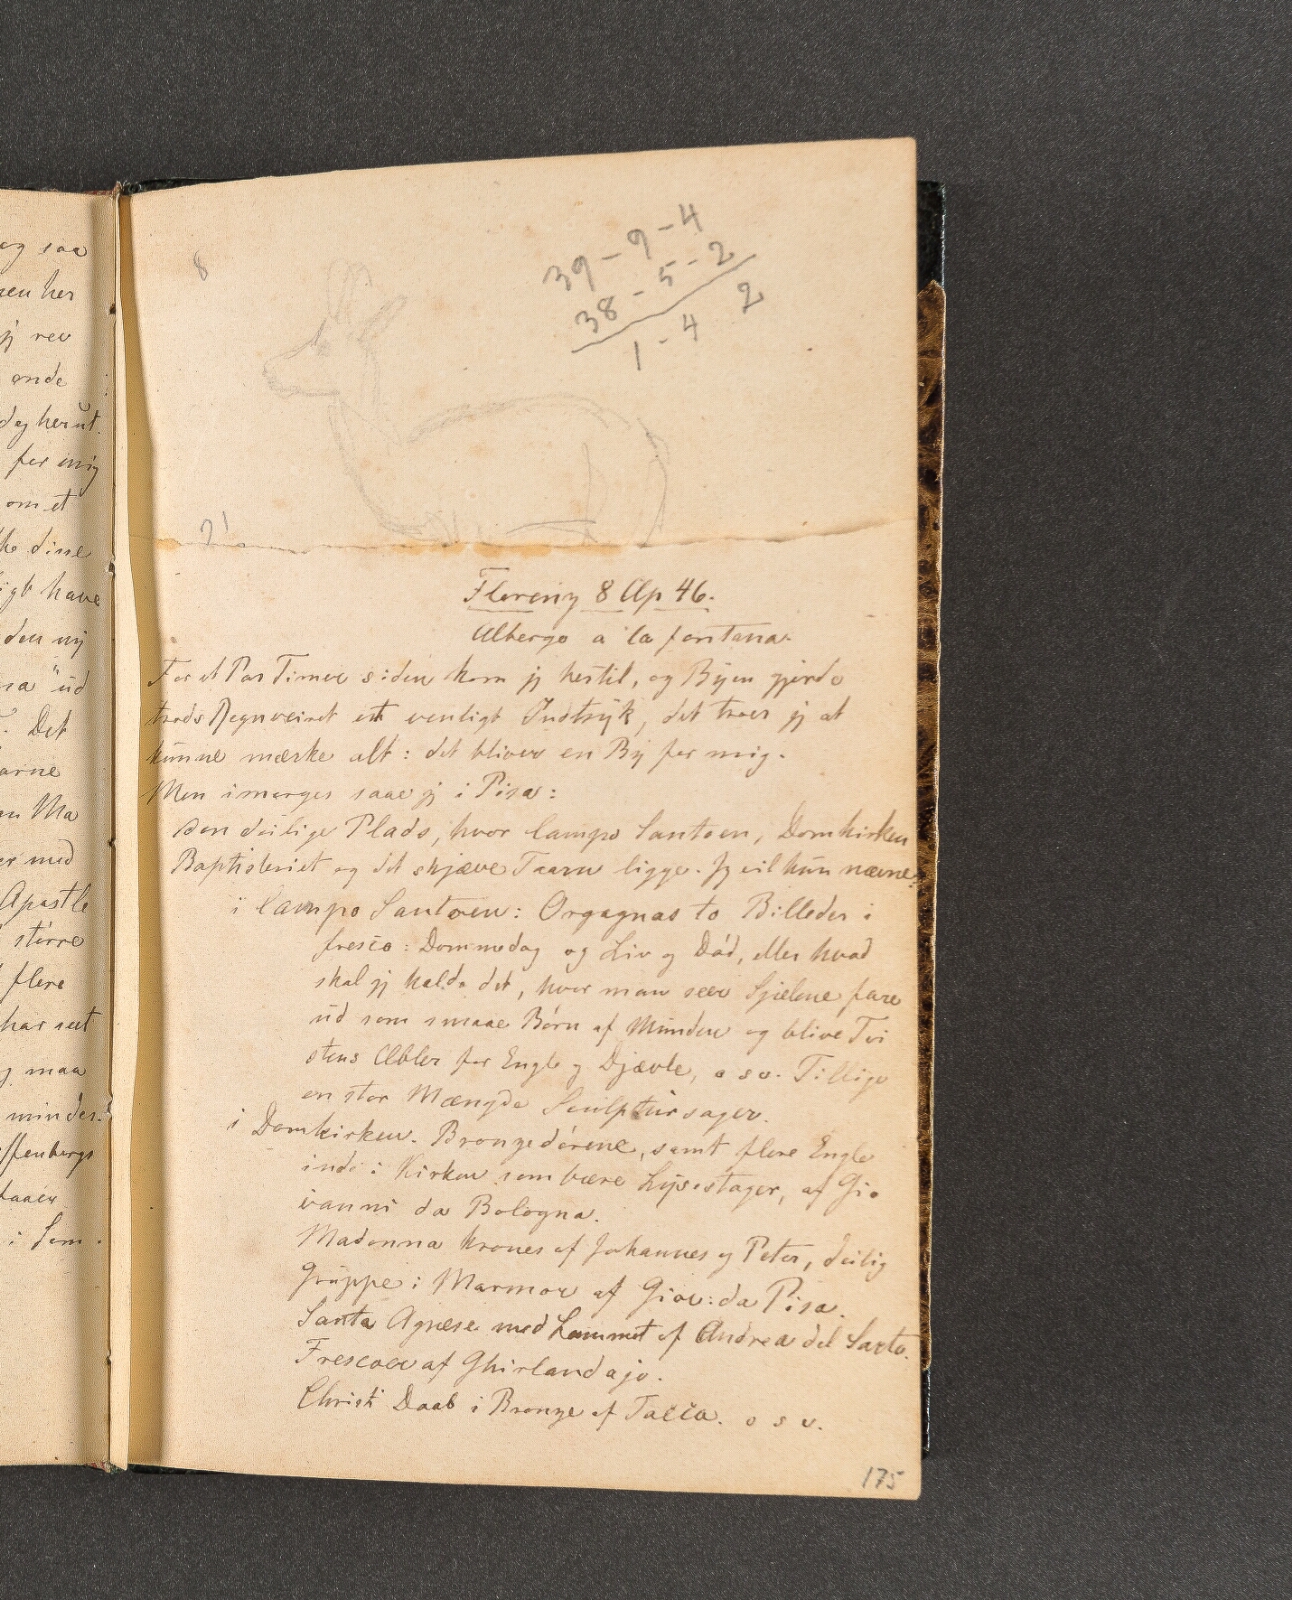 og saa
her
jeg rev
ende
herut.
for mig
om et
disse
have
den ny
ud
Det
Ma
med
Apostle
større
flere
har seet
maa
mindes.
i Som.
8
39 - 9 - 4
38 - 5 - 2
1 - 4 2
21
Florenz 8 Ap 46.
Albergo a la fontana.
For et Par Timer siden kom jeg hertil, og Byen gjorde
trods Regnveiret et venligt Indtryk, det troer jeg at
kunne mærke alt: det bliver en By for mig.
Men imorges saae jeg i Pisa:
den deilige Plads, hvor Campo Santoen, Domkirken
Baptisteriet og det skjæve Taarn ligge. Jeg vil kun nævne:
i Campo Santoen: Orgagnas to Billeder i
fresco: Dommedag og Liv og Død, eller hvad
skal jeg kalde det, hvor man seer Sjælene fare
ud som smaae Børn af Munden og blive Tvi
stens Æbler for Engle og Djævle, o s v. Tillige
en stor Mængde Sculptursager.
i Domkirken. Bronzedørene, samt flere Engle
inde i Kirken som bære Lysestager, af Gio
vanni da Bologna.
Madonna krones af Johannes og Peter, deilig
Gruppe i Marmor af Giov: da Pisa.
Santa Agnese med Lammet af Andrea del Sarto.
Frescoer af Ghirlandajo.
Christi Daab i Bronze af Tacca. o s v.
175